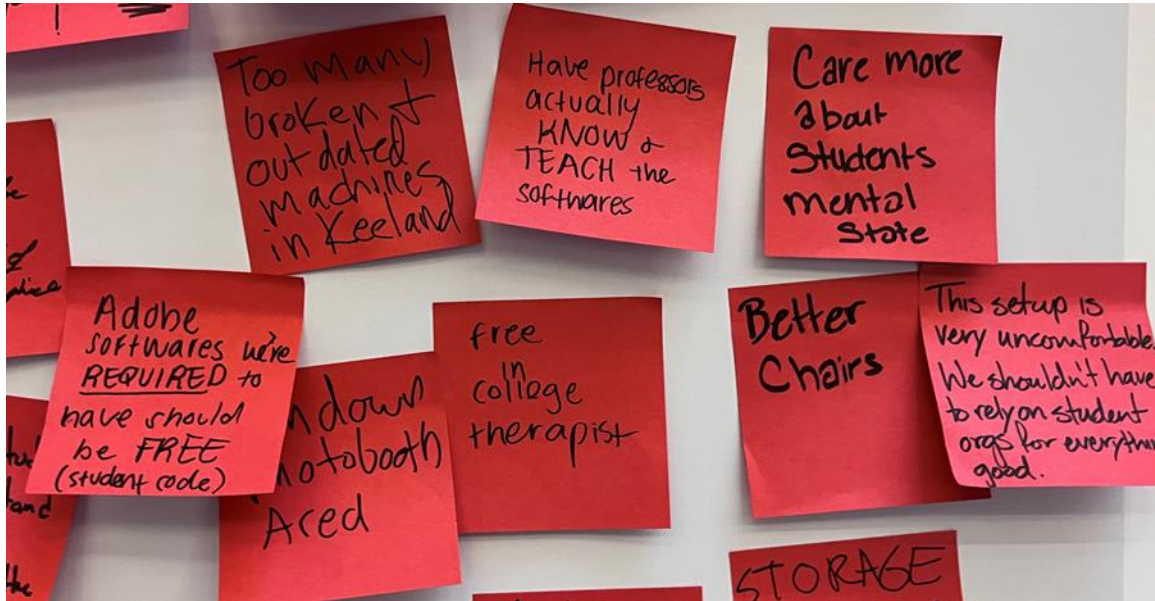 Too many
broken &
outdated
machines
in Keeland
Have professors
actually
KNOW &
TEACH the
softwares
Care more
about
students
mental
state
Adobe
softwares we're
REQUIRED to
have should
be FREE
(student code)
Area
free
in
college
therapist
Better
Chairs
This setup is
very uncomfortable.
We shouldn't have
to rely on student
orgs for everythin
good.
STORAGE